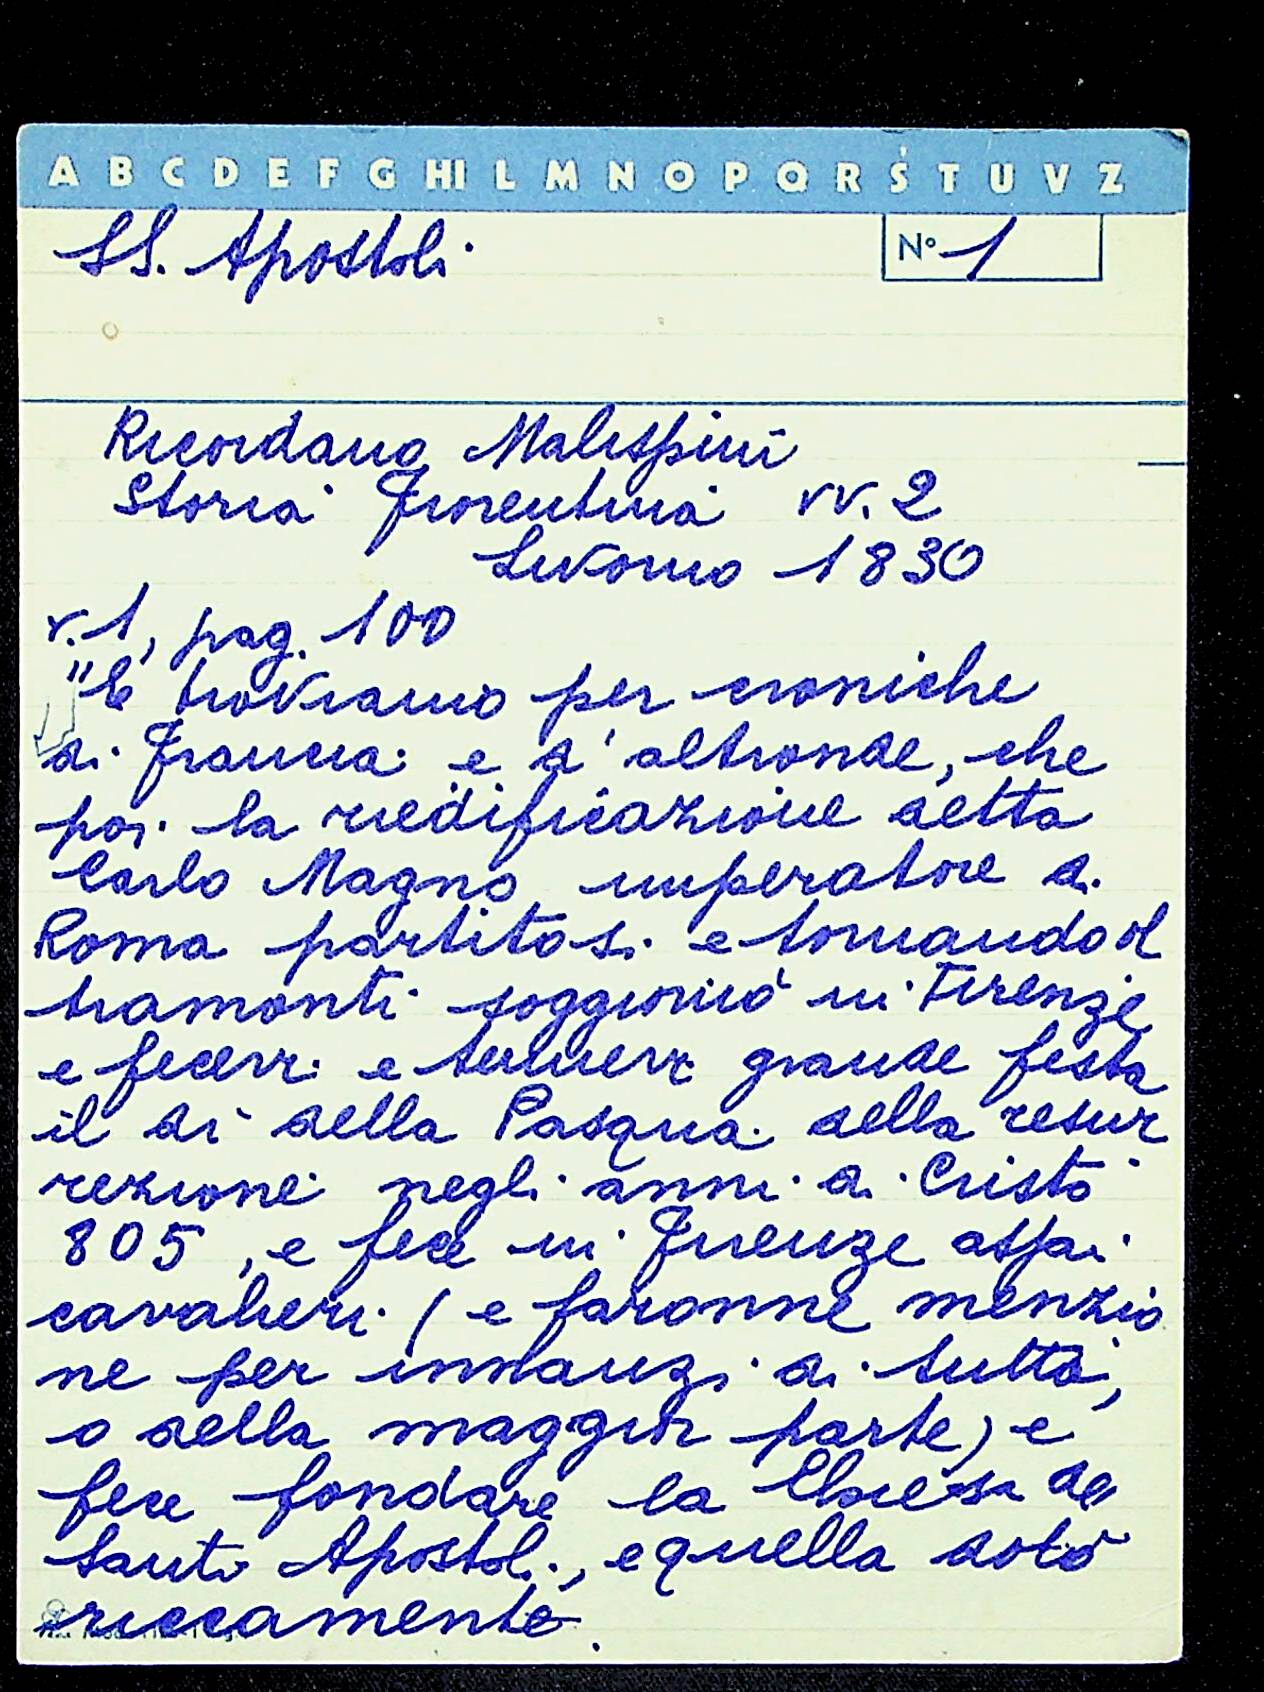 A B C D E F G HI L M N O P Q R S T U V Z
SS. Apostoli
N° 1
Ricordano Malispini
Storia Fiorentina vv. 2
Livorno 1830
v. 1, pag. 100
"E troviamo per croniche
di Francia e d'altronde, che
poi la riedificazione detta
Carlo Magno imperatore di
Roma partitosi e tornando ol
tramonti soggiornò in Firenze
e fecevi e tennevi grande festa
il dì della Pasqua della resur
rezione negli anni di Cristo
805, e fece in Firenze assai
cavalieri (e faronne menzio
ne per innanzi di tutti,
o della maggior parte) e
fece fondare la Chiesa de
Santi Apostoli, e quella dotò
riccamente.